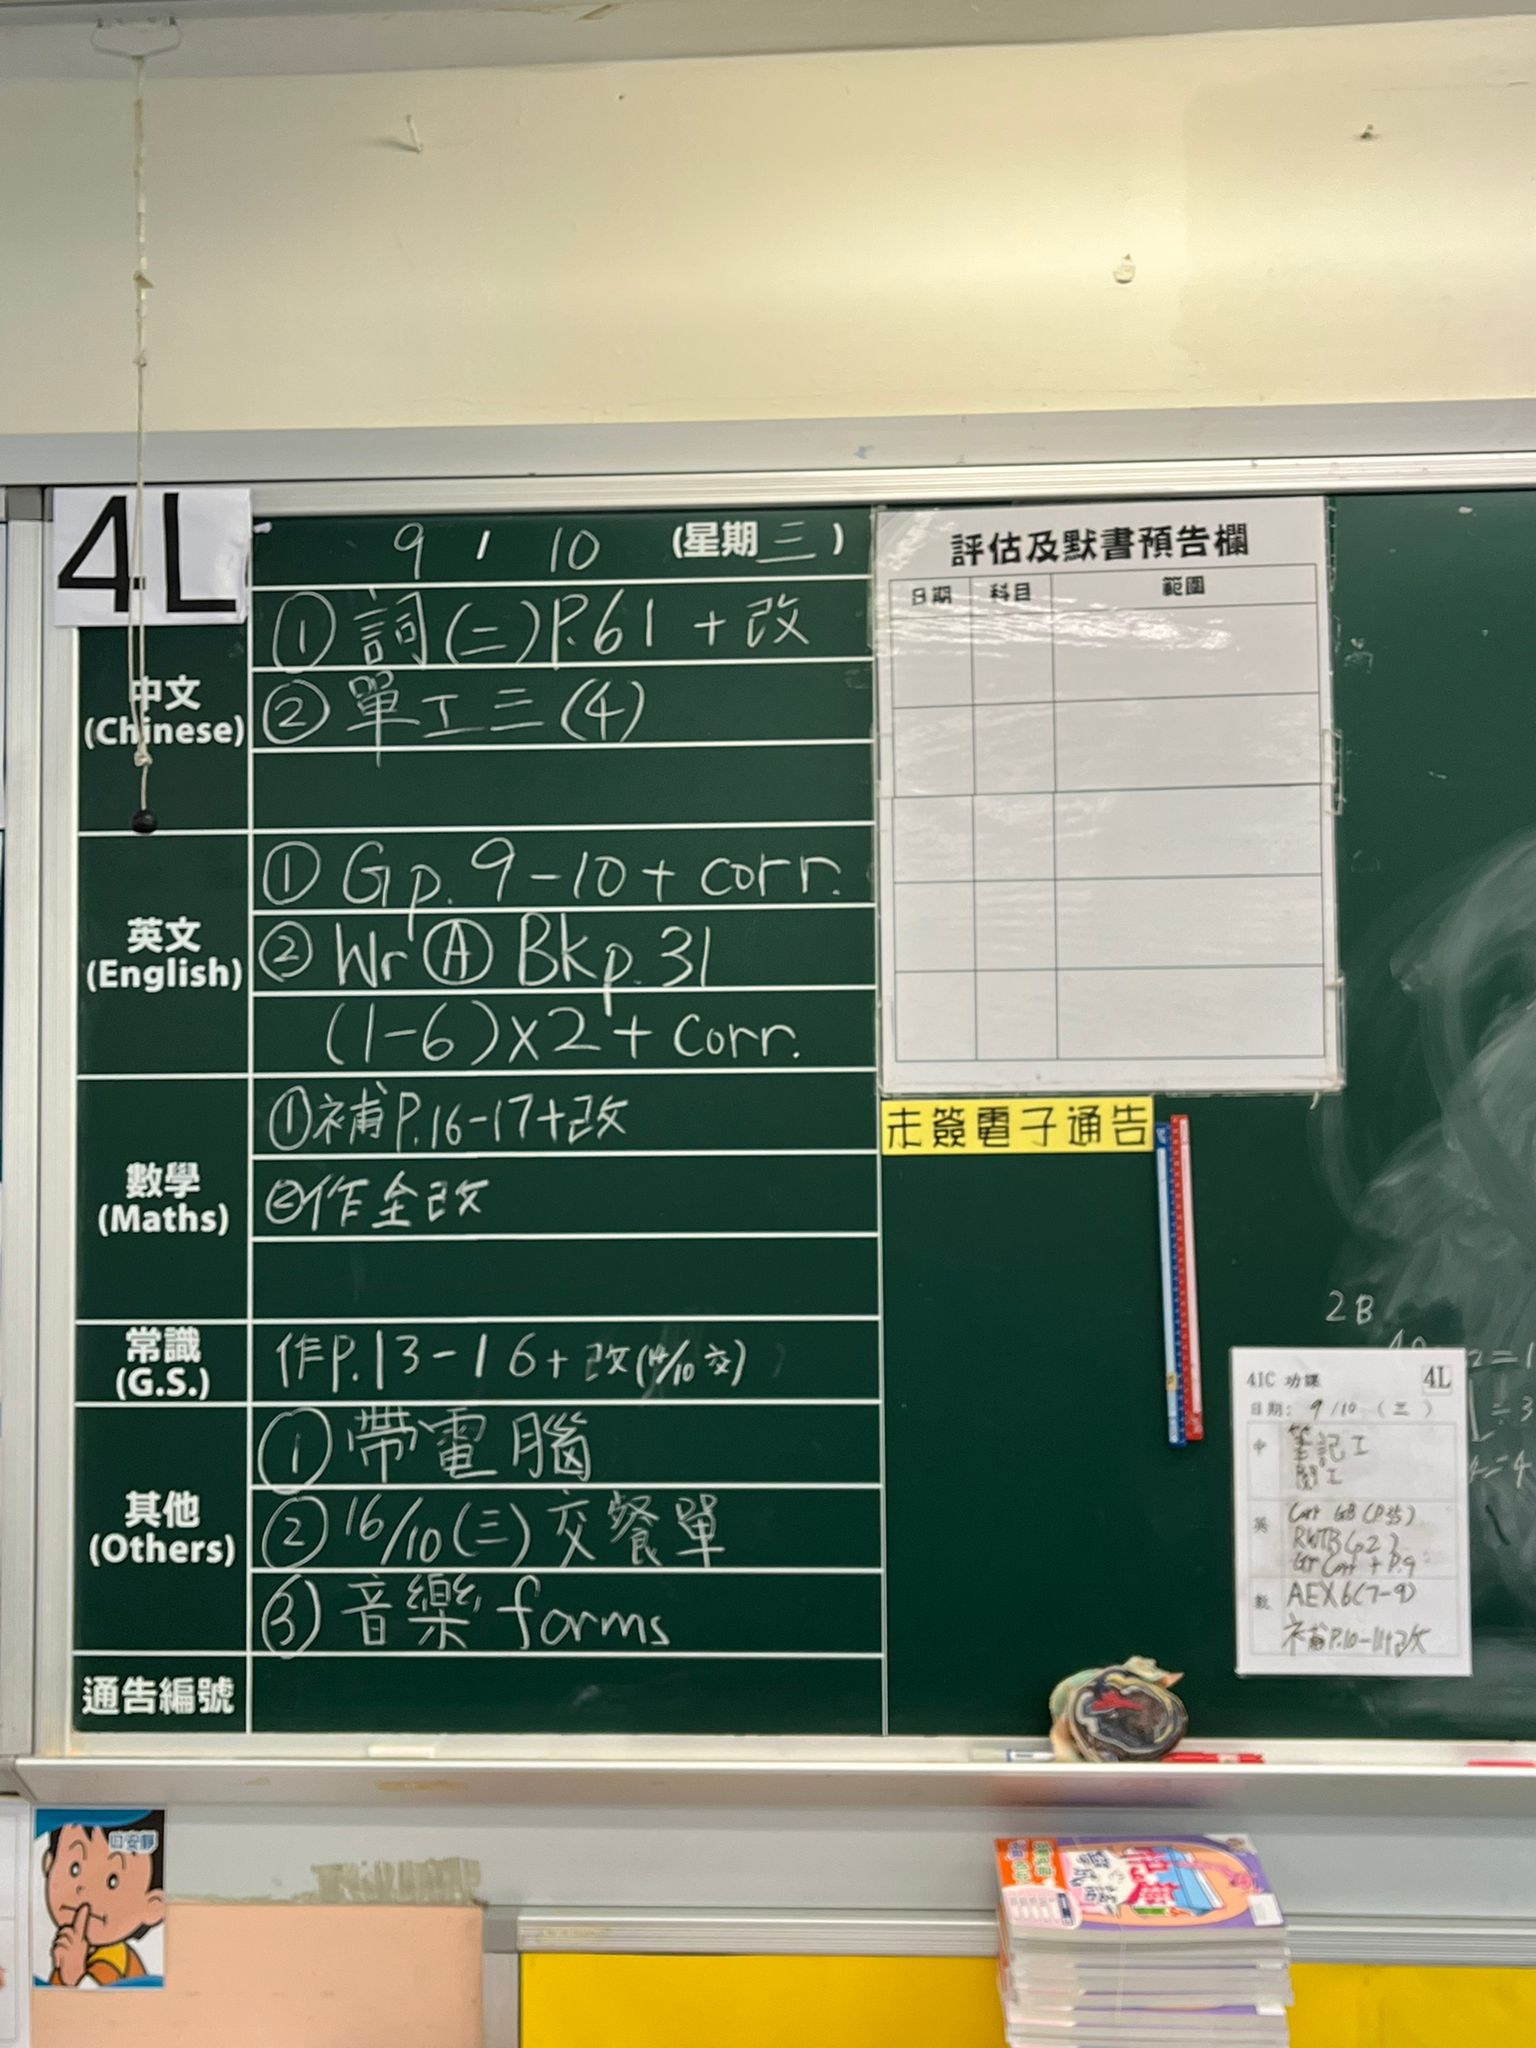 4L
9 / 10 (星期三)
中文
(Chinese)
① 詞(二)P.61 + 改
② 單工三(4)
英文
(English)
① Gp. 9-10 + corr.
② Wr Ⓐ Bk p.31
(1-6)x2 + Corr.
數學
(Maths)
①補P.16-17+改
②作全改
常識
(G.S.)
作P.13-16+改(14/10交)
其他
(Others)
① 帶電腦
② 16/10(三)交餐單
③ 音樂 forms
通告編號
評估及默書預告欄
日期 科目 範圍
未簽電子通告
2B
4IC 功課 4L
日期: 9/10 (三)
中 筆記工
閱工
英 Corr GB (P.35)
RWTB(G2)
Gr Corr + P.9
數 AEX6(7-9)
補P.10-11+改
安靜